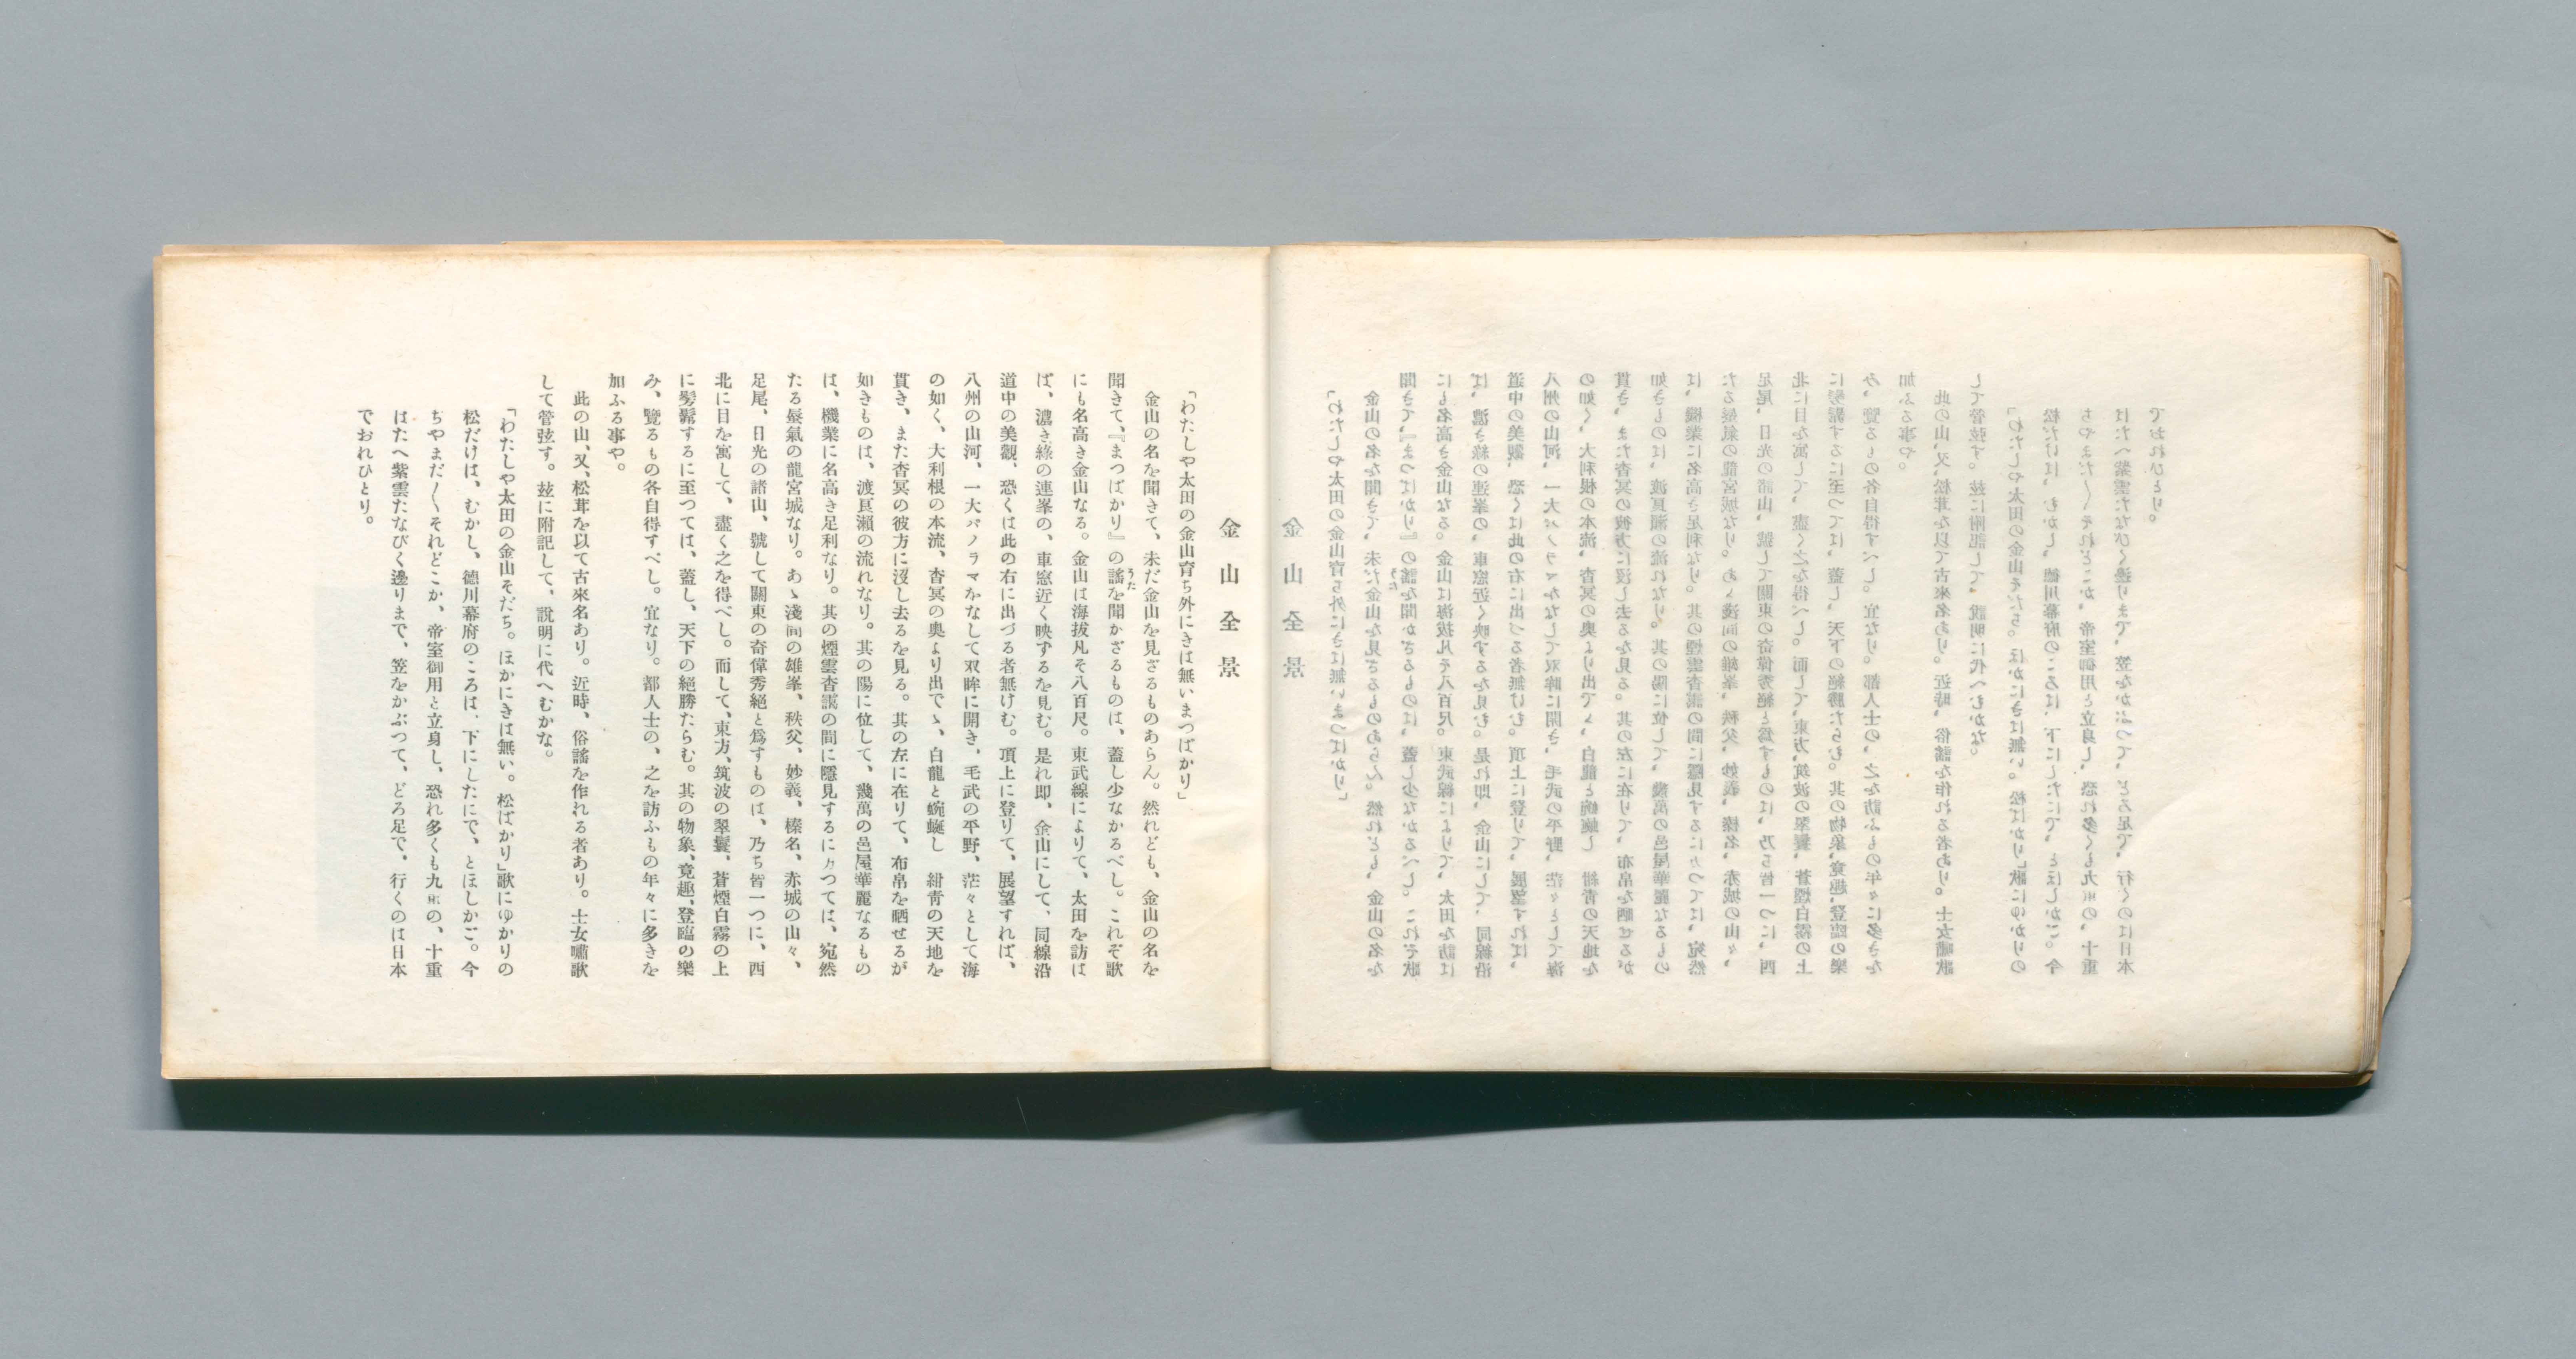 金山全景
「わたしや太田の金山育ち外にきは無いまつばかり」
金山の名を聞きて、未だ金山を見ざるものあらん。然れども、金山の名を
聞きて、『まつばかり』の謠を聞かざるものは、蓋し少なかるべし。これぞ歌
うた
にも名高き金山なる。金山は海拔凡そ八百尺。東武線によりて、太田を訪は
ば、濃き綠の連峯の、車窓近く映ずるを見む。是れ即、金山にして、同線沿
道中の美觀、恐くは此の右に出づる者無けむ。頂上に登りて、展望すれば、
八州の山河、一大パノラマをなして双眸に開き、毛武の平野、茫々として海
の如く、大利根の本流、杳冥の奥より出でゝ、白龍と蜿蜒し 紺青の天地を
貫き、また杳冥の彼方に沒し去るを見る。其の左に在りて、布帛を晒せるが
如きものは、渡良瀨の流れなり。其の陽に位して、幾萬の邑屋華麗なるもの
は、機業に名高き足利なり。其の煙雲杳靄の間に隱見するに方つては、宛然
たる蜃氣の龍宮城なり。あゝ淺間の雄峯、秩父、妙義、榛名、赤城の山々、
足尾、日光の諸山、號して關東の奇偉秀絕と爲すものは、乃ち皆一つに、西
北に目を寓して、盡く之を得べし。而して、東方、筑波の翠鬟、蒼煙白霧の上
に髣髴するに至つては、蓋し、天下の絕勝たらむ。其の物象、竟趣、登臨の樂
み、覽るもの各自得すべし。宜なり。都人士の、之を訪ふもの年々に多きを
加ふる事や。
此の山、又、松茸を以て古來名あり。近時、俗謠を作れる者あり。士女嘯歌
して管弦す。玆に附記して、說明に代へむかな。
「わたしや太田の金山そだち。ほかにきは無い。松ばかり」歌にゆかりの
松だけは、むかし、德川幕府のころは、下にしたにで、とほしかご。今
ぢやまだ〳〵それどこか、帝室御用と立身し、恐れ多くも九重の、十重
はたへ紫雲たなびく邊りまで、笠をかぶつて、どろ足で、行くのは日本
でおれひとり。